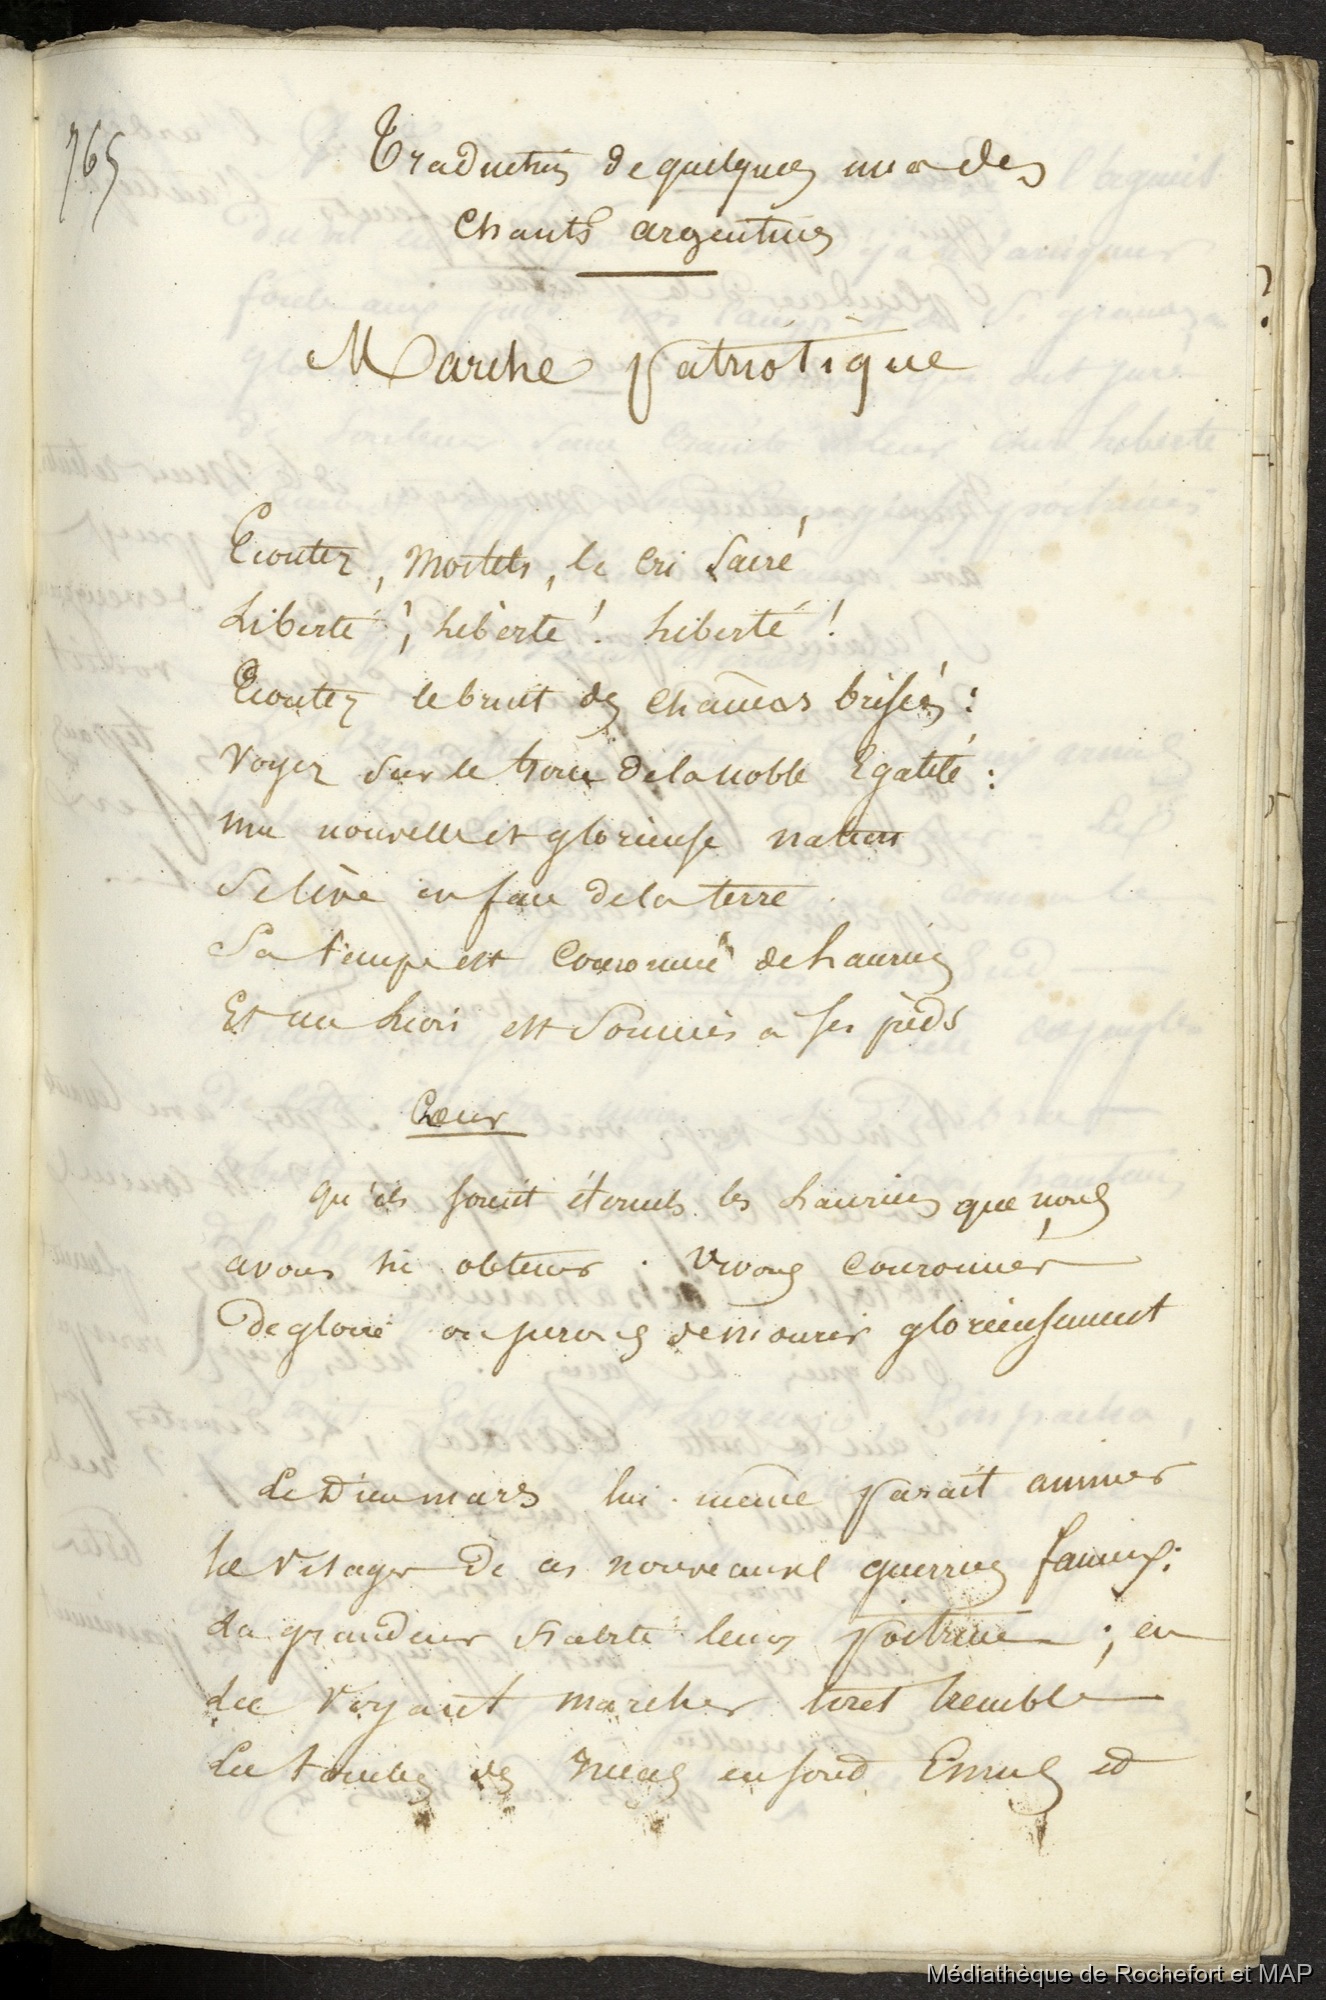 765
Traduction de quelques uns des
Chants argentins
Marche patriotique
Ecoutez, Mortels, le cri Sacré
Liberté!, Liberté! Liberté!
Ecoutez le bruit des chaines brisées:
Voyez sur le trone de la noble Egalité:
une nouvelle et glorieuse nation
Se lève en face de la terre
Sa tempe est couronné de Lauriers
Et un Lion est soumis a ses pieds
Chœur
qu'ils soient éternels les Lauriers que nous
avons su obtenir. Vivons couronnés
De gloire ou jurons de mourir glorieusement
Le Dieu mars lui-même parait animer
les visages de ces nouveaux guerriers fameux:
La grandeur habite leurs poitrines; en
les voyant marcher tout tremble
Les tombes des Incas en sont Emues et
Médiathèque de Rochefort et MAP